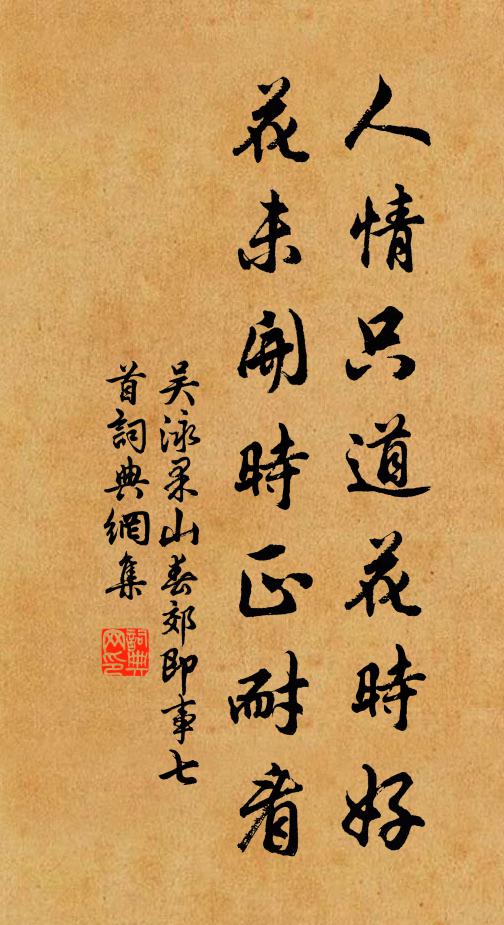 人情只道花時好
花未開時正耐看
吴泳果山春郊即事七
首詞典網集
詞典网印